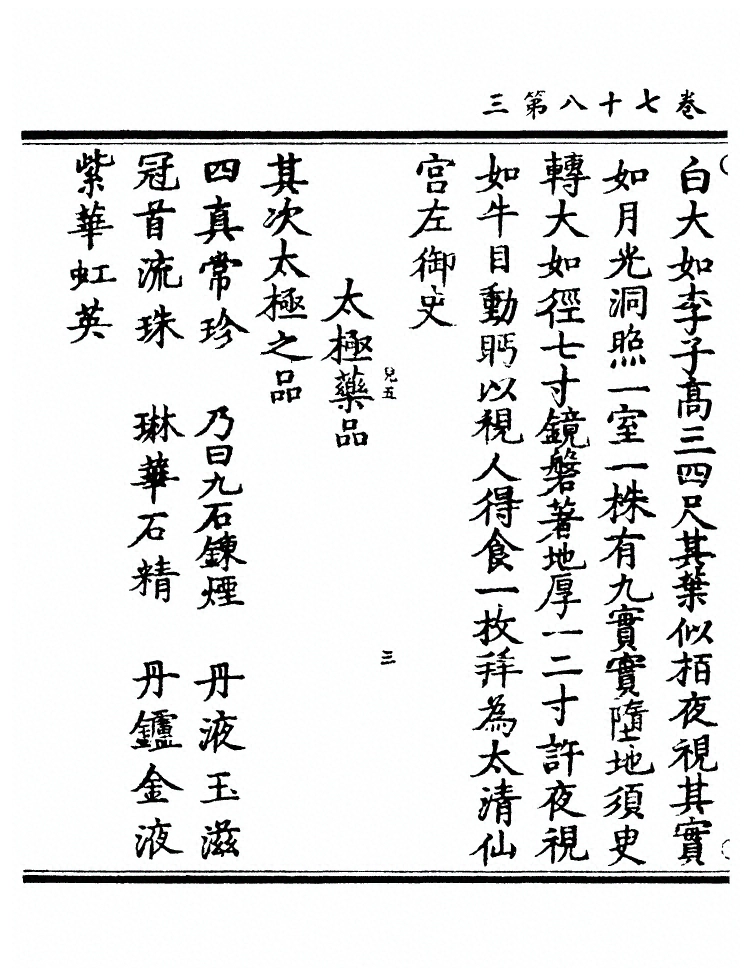 三第八十七卷
白大如李子高三四尺其葉似栢夜視其實
如月光洞照一室一株有九實實墮地須史
轉大如徑七寸鏡磐著地厚一二寸許夜視
如牛目動眄以視人得食一枚拜為太清仙
宫左御史
兒五
三
太極藥品
其次太極之品
四真常珍 乃曰九石鍊煙 丹液玉滋
冠首流珠 琳華石精 丹鑪金液
紫華虹英